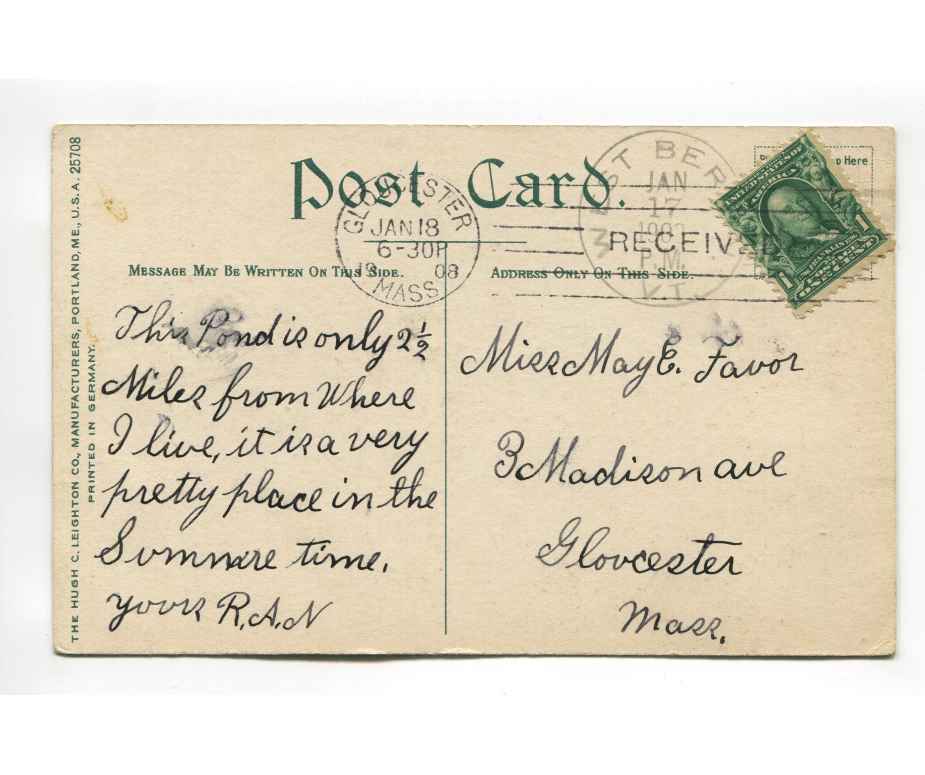 THE HUGH C. LEIGHTON CO., MANUFACTURERS, PORTLAND, ME., U.S.A. 25708
PRINTED IN GERMANY.
Post Card.
Here
GLOUCESTER
JAN 18
6-30P
19 08
MASS
WEST BER
JAN
17
P.M.
VT.
RECEIVED
1
1
MESSAGE MAY BE WRITTEN ON THIS SIDE.
ADDRESS ONLY ON THIS SIDE.
This Pond is only 2½
Miles from Where
I live, it is a very
pretty place in the
Summere time.
yours R.A.N
Miss May E. Favor
3 Madison ave
Gloucester
Mass.